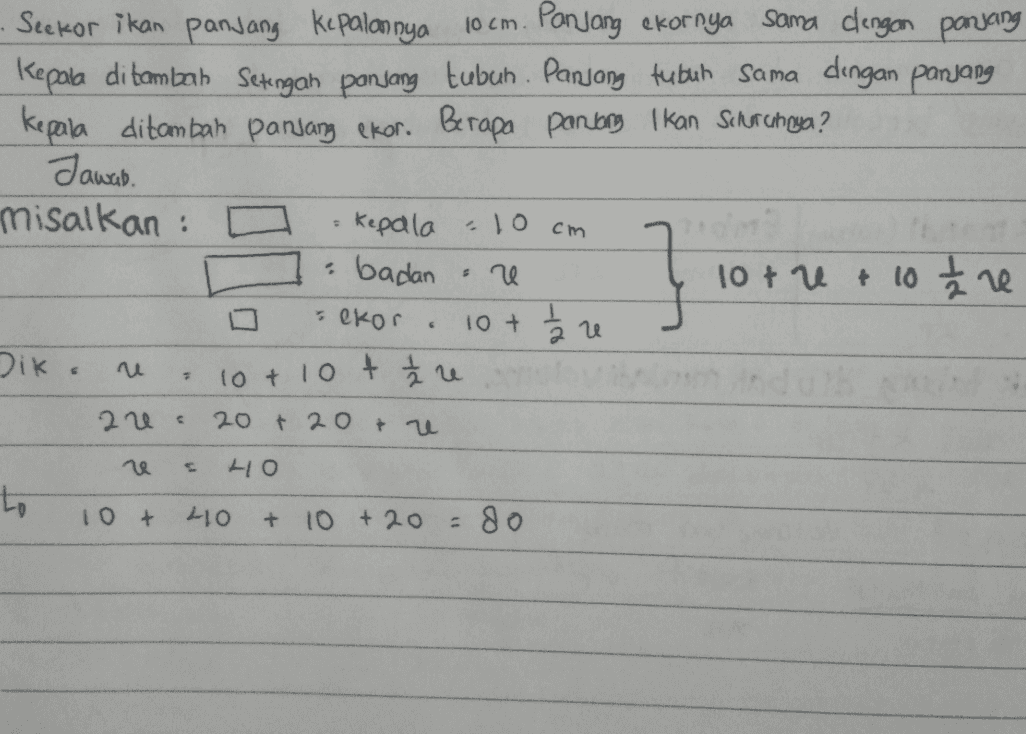 . Seekor ikan panjang kepalannya 10 cm. Panjang ekornya sama dengan panjang
kepala ditambah setengah panjang tubuh. Panjang tubuh sama dengan panjang
kepala ditambah panjang ekor. Berapa panjang Ikan Seluruhnya?
Jawab.
misalkan : = kepala = 10 cm
= badan = x
= ekor = 10 + 1/2 x
10 + x + 10 1/2 x
Dik = x = 10 + 10 + 1/2 x
2x = 20 + 20 + x
x = 40
↳ 10 + 40 + 10 + 20 = 80